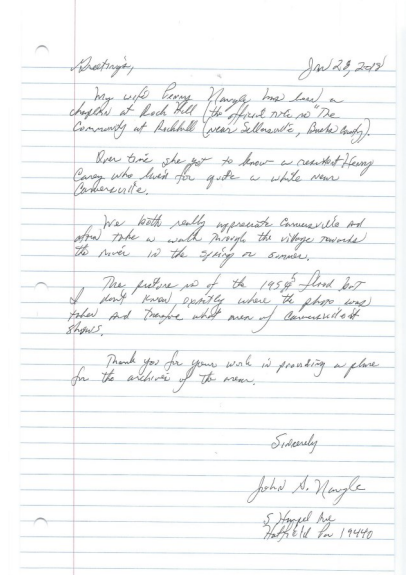 Greetings,
Jan 28, 2018
My wife Penny Naugle has been a
chaplin at Rock Hill (the official title is "The
Community at Rockhill (near Sellersville, Bucks County).
Over time she got to know a resident Henry
Carey who lived for quite a while near
Carversville.
We both really appreciate Carversville and
often take a walk through the village towards
the river in the spring or summer.
The picture is of the 1955 flood but
I don't know exactly where the photo was
taken and therefore what area of Carversville it
shows.
Thank you for your work in providing a place
for the archives of the area.
Sincerely
John S. Naugle
5 Hempel Ave
Hatfield Pa 19440